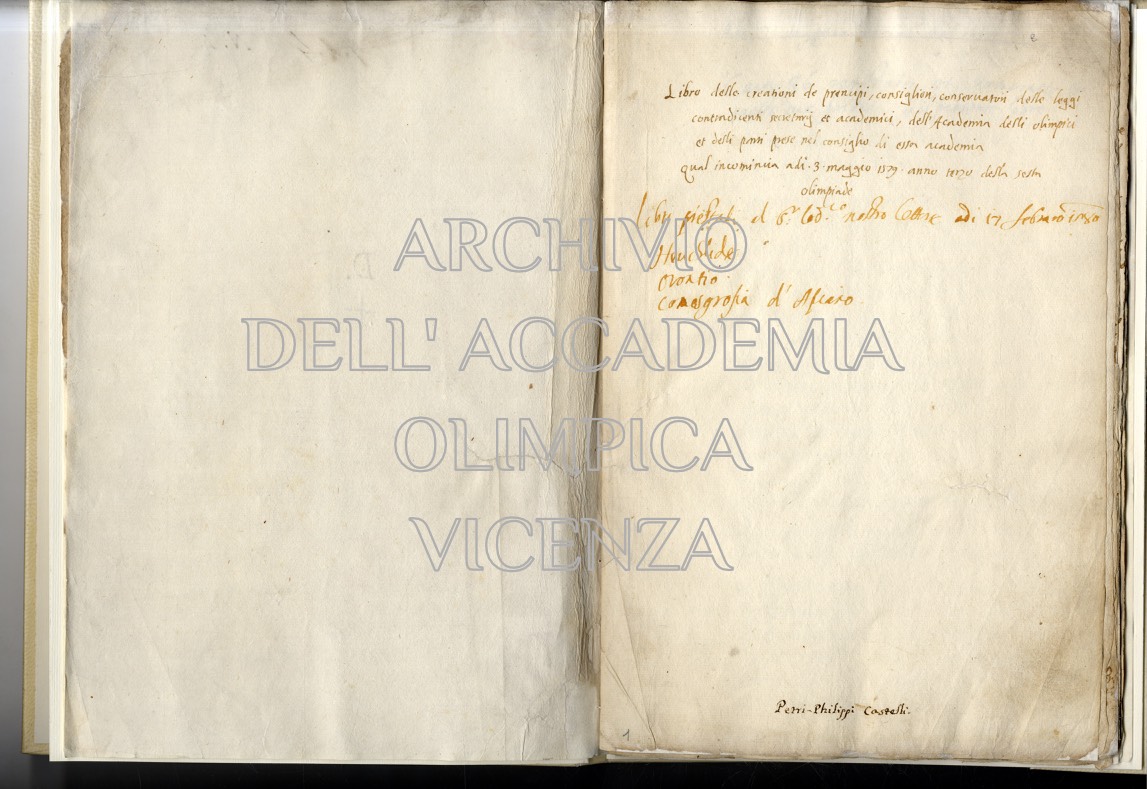 Libro delle creationi de prencipi, consiglieri, conservatori delle leggi
contradicenti secretarij et academici, dell'Academia delli olimpici
et delli parti prese nel consiglio di essa academia
qual incomincia adi .3. maggio 1579. anno terzo della sesta
olimpiade
libri prestati al nostro adi 17 febraro 1580
Euclide
Orontio
d'
ARCHIVIO
DELL' ACCADEMIA
OLIMPICA
VICENZA
Petri-Philippi Castelli.
1